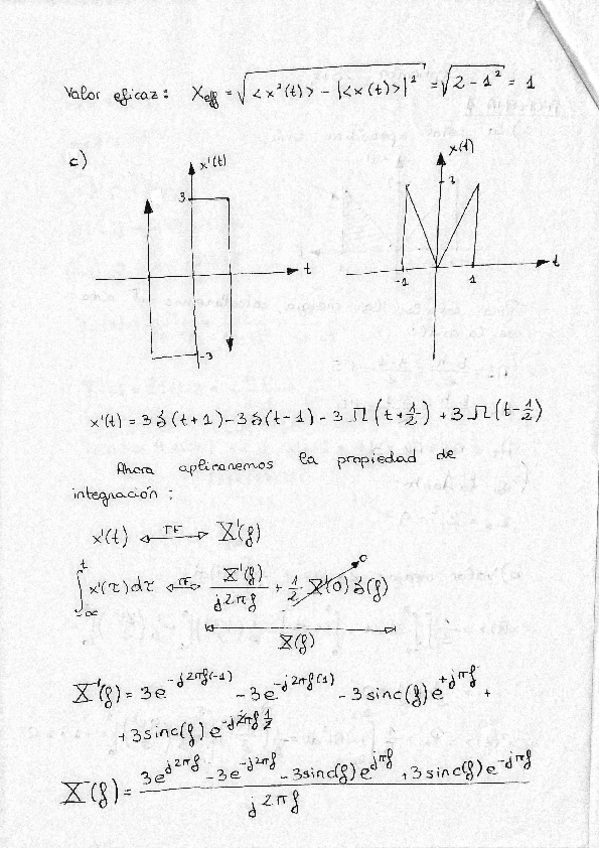 Valor eficaz: X_eff = √(<x²(t)> - |<x(t)>|²) = √(2 - 1²) = 1
c)
x'(t)
x(t)
3
3
t
-1
1
t
-3
x'(t) = 3δ(t+1) - 3δ(t-1) - 3Π(t+1/2) + 3Π(t-1/2)
Ahora aplicaremos la propiedad de
integración:
x'(t) <—TF—> X'(f)
∫_{-∞}^{t} x'(τ)dτ <—TF—> X'(f)/(j2πf) + 1/2 X'(0) δ(f)
0
X(f)
X'(f) = 3e^{-j2πf(-1)} - 3e^{-j2πf(1)} - 3sinc(f)e^{+jπf} +
+ 3sinc(f)e^{-j2πf 1/2}
X(f) = (3e^{j2πf} - 3e^{-j2πf} - 3sinc(f)e^{jπf} + 3sinc(f)e^{-jπf})/(j2πf)